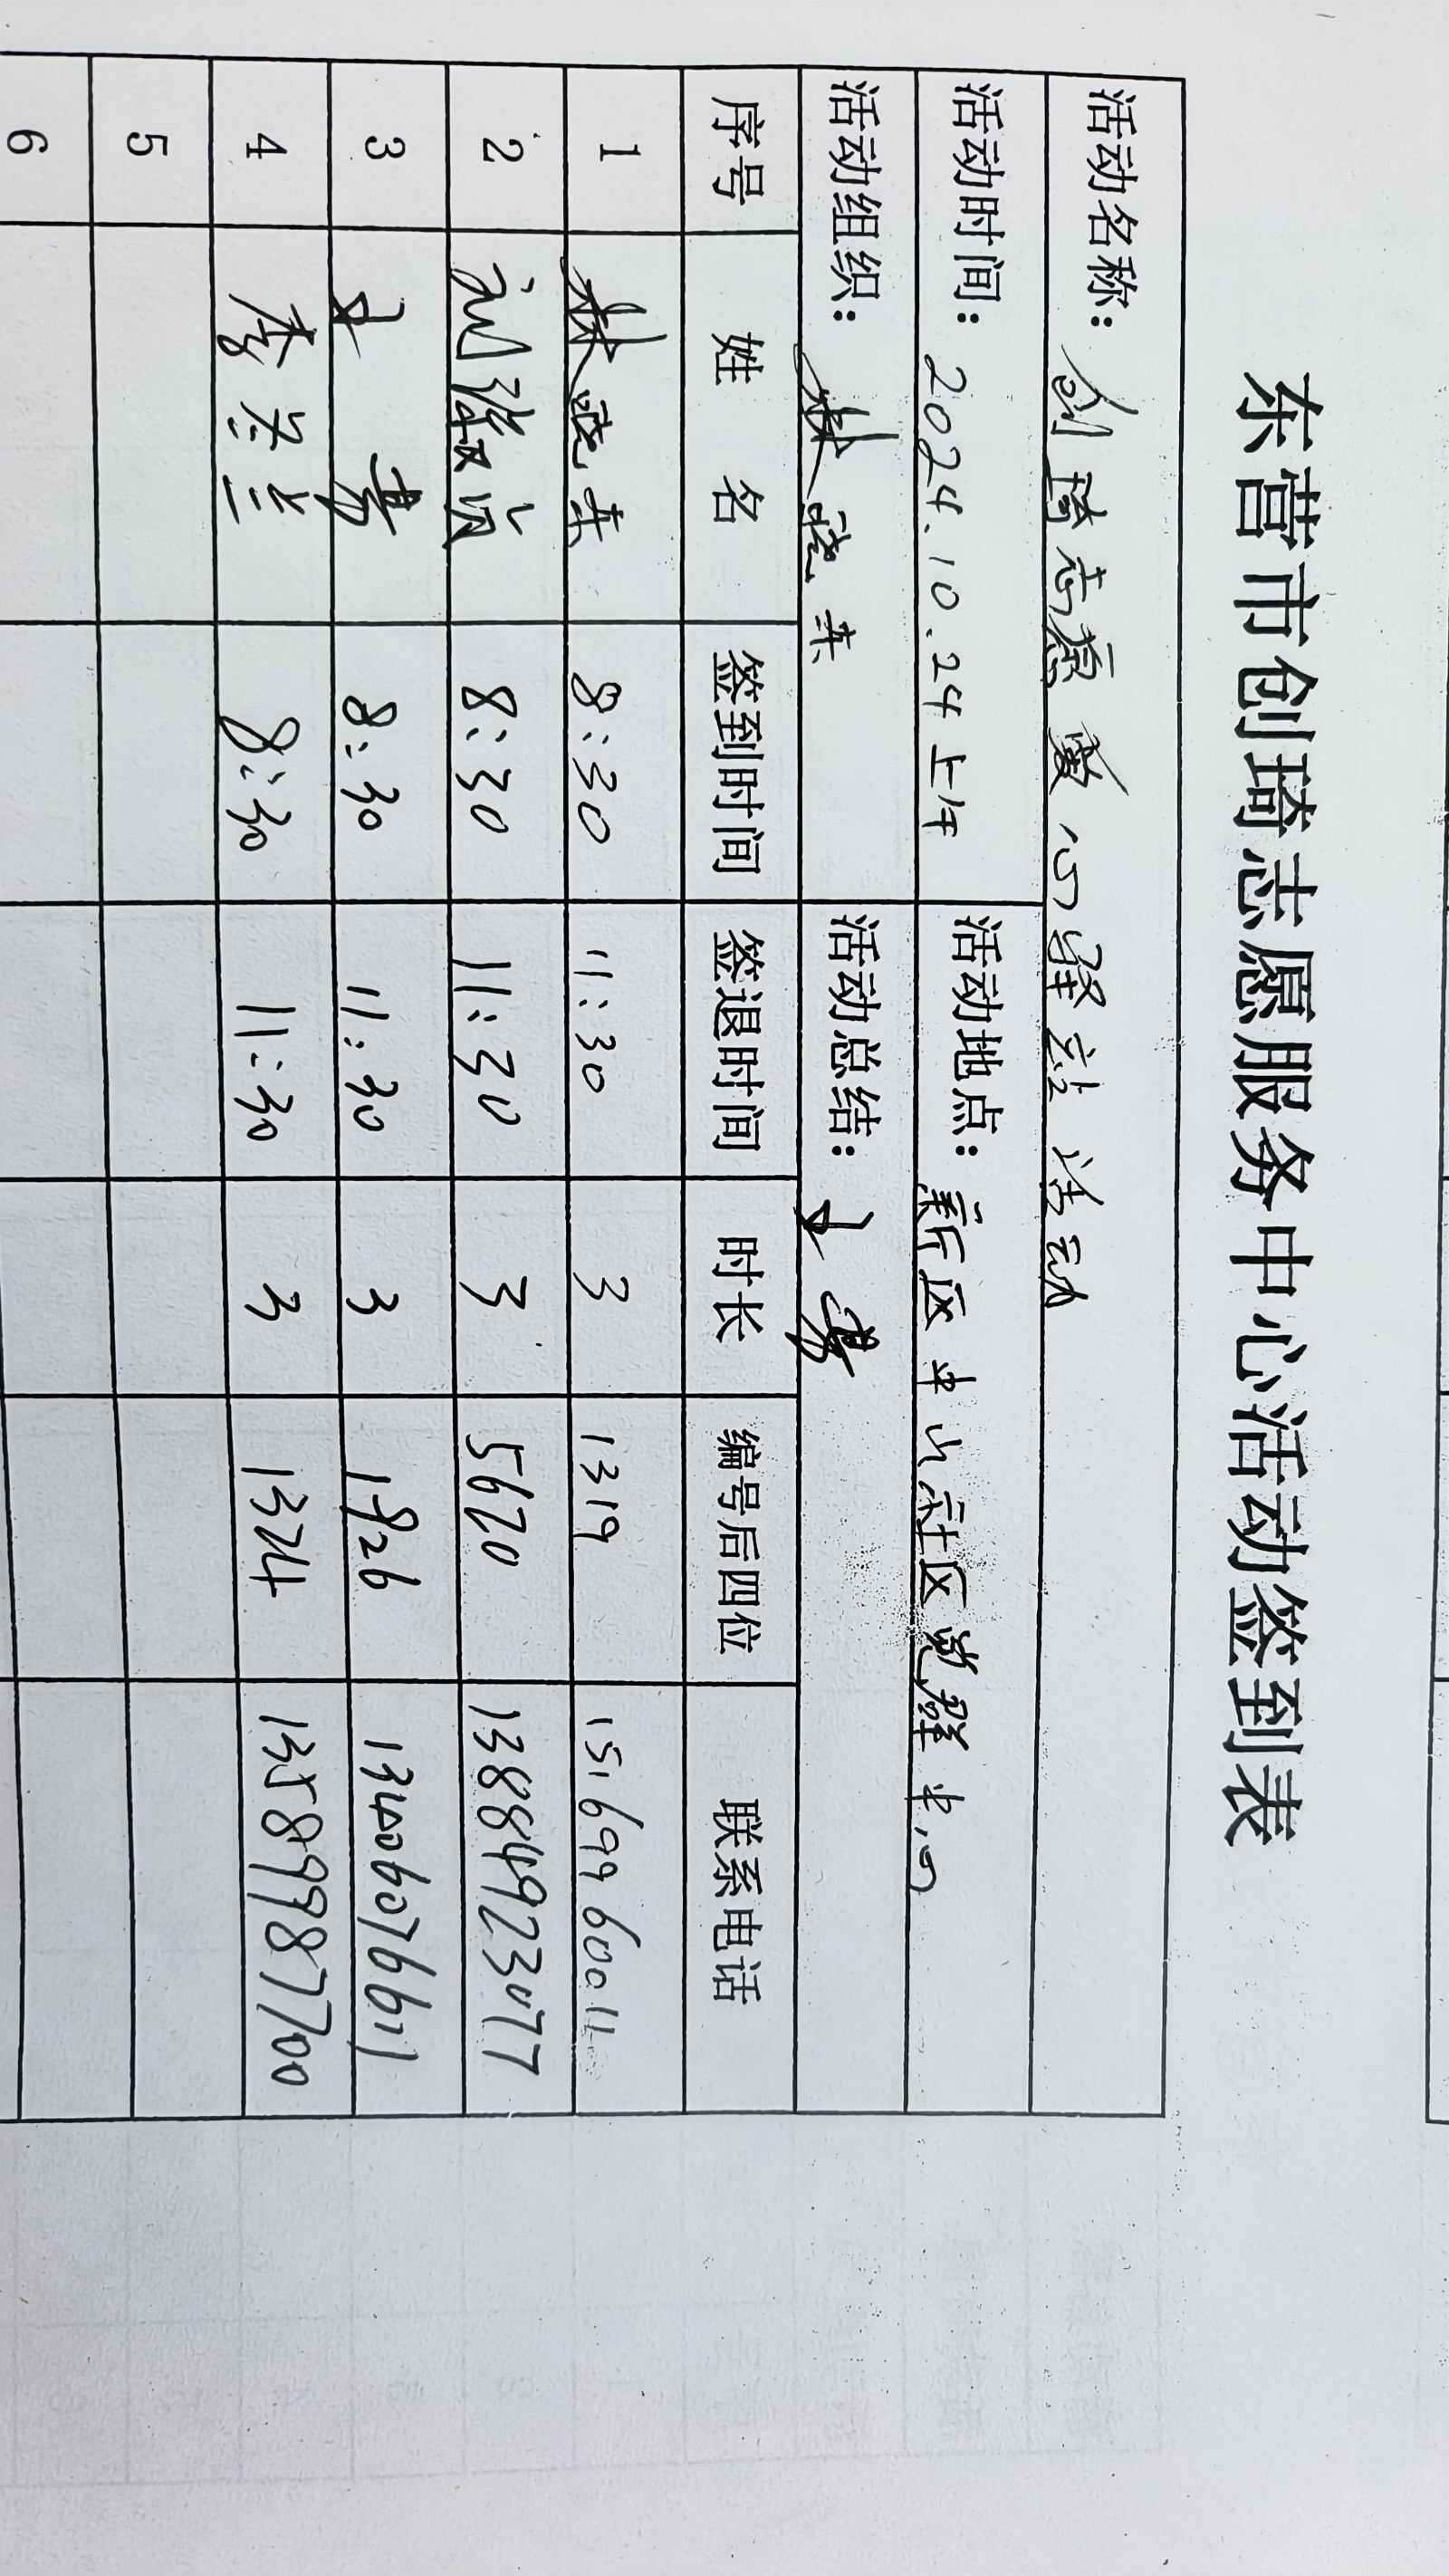 东营市创琦志愿服务中心活动签到表
活动名称：创琦志愿爱心驿站活动
活动时间：2024.10.24上午 活动地点：新区中山社区党群中心
活动组织：林晓东 活动总结：
序号 姓名 签到时间 签退时间 时长 编号后四位 联系电话
1 林晓东 8:30 11:30 3 1319 15169960011
2 刘 8:30 11:30 3 5620 13884923077
3 8:30 11:30 3 1926 13406076611
4 李芸兰 8:30 11:30 3 1324 13589987700
5
6